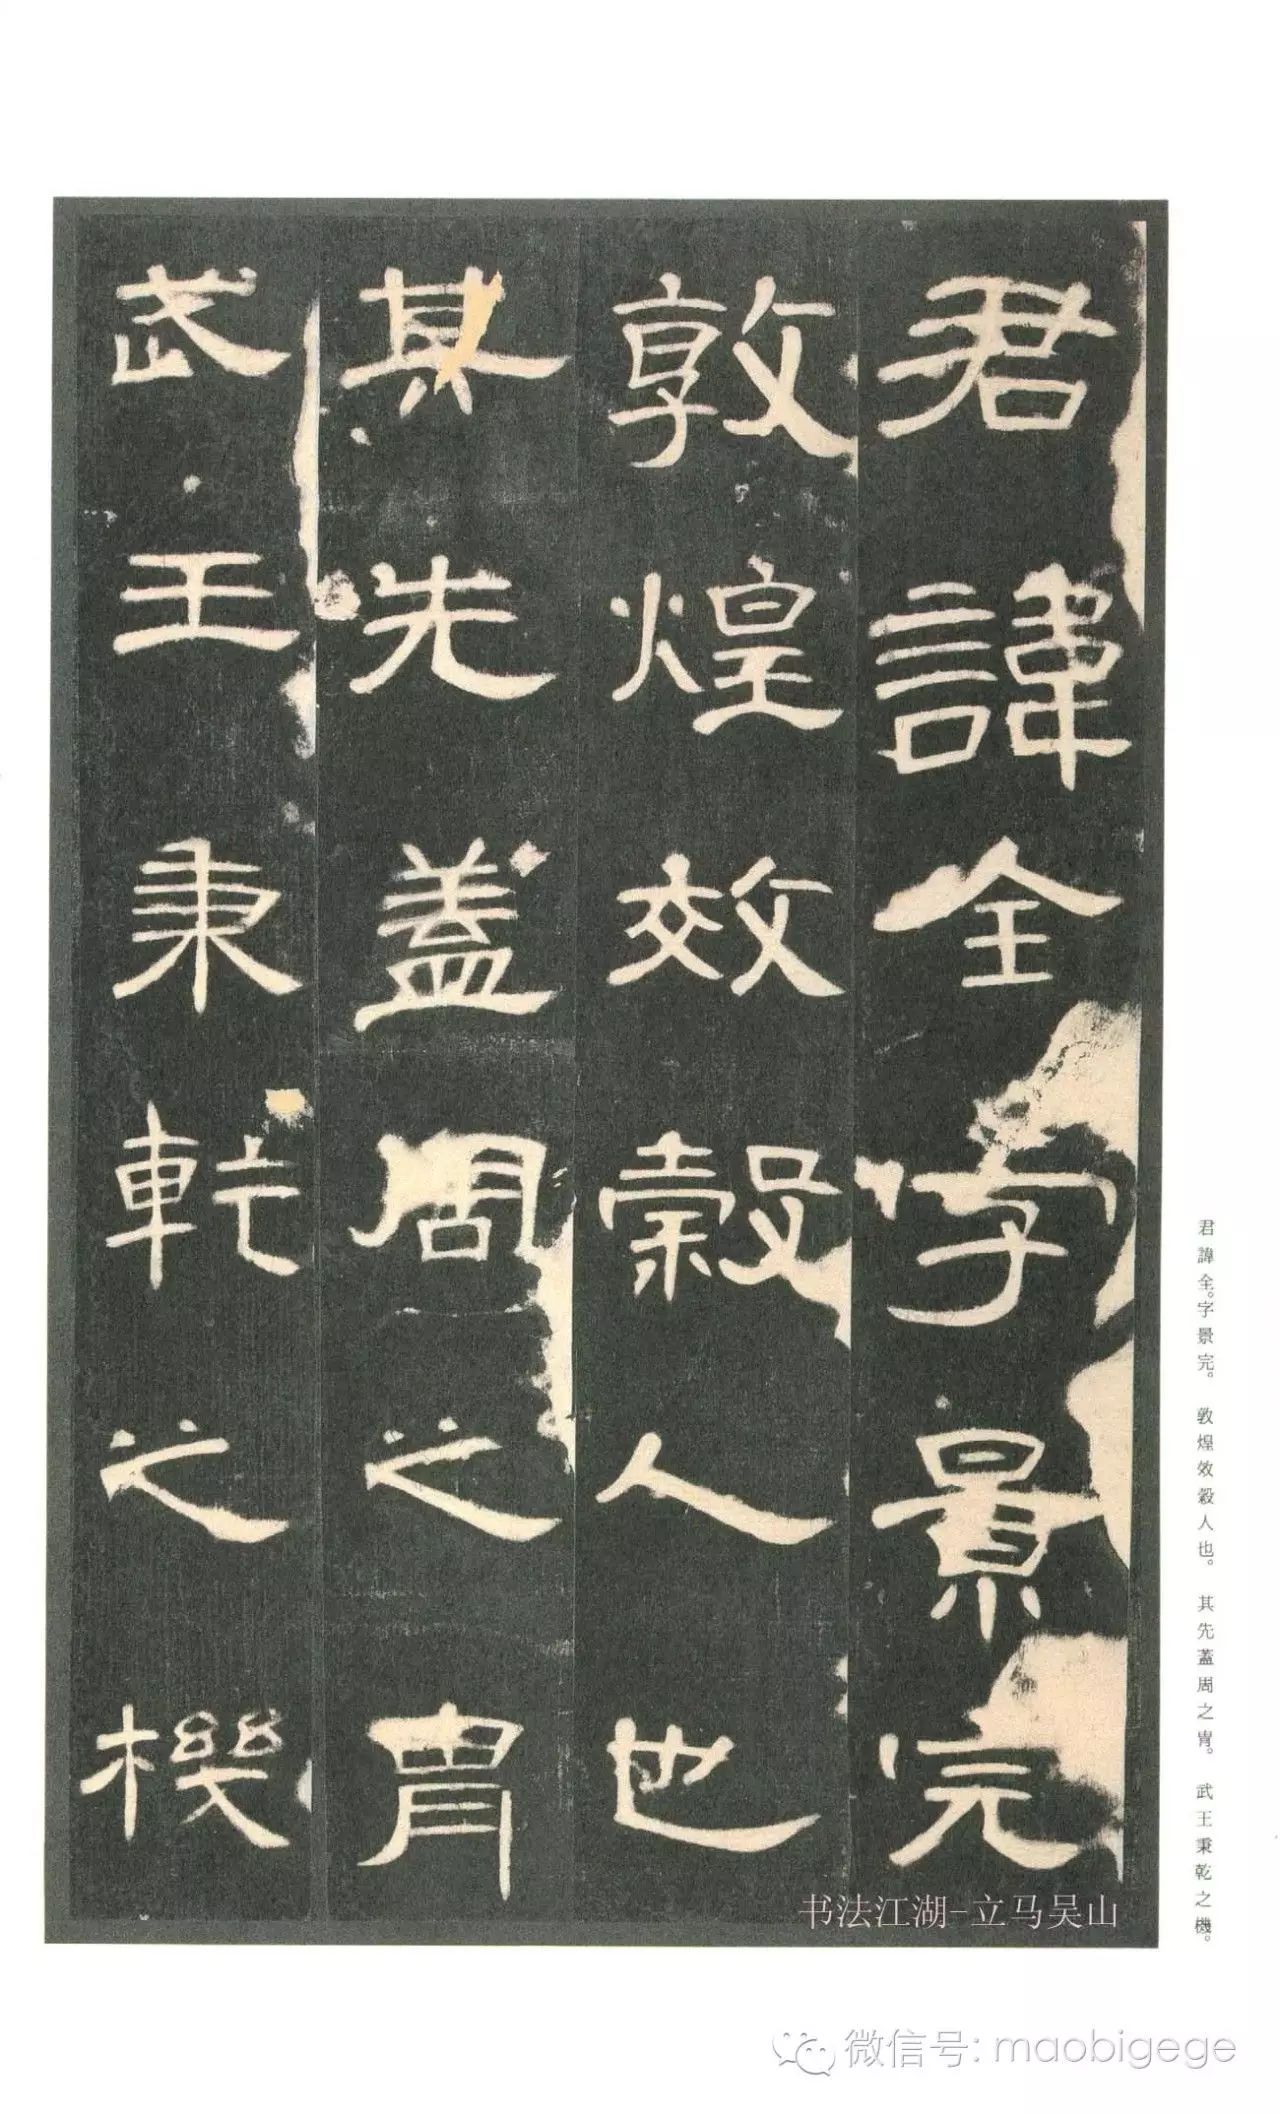 君諱全字景完
敦煌效穀人也
其先蓋周之胄
武王秉乾之機
君諱全。字景完。 敦煌效穀人也。 其先蓋周之胄。 武王秉乾之機。
书法江湖-立马吴山
微信号: maobigege